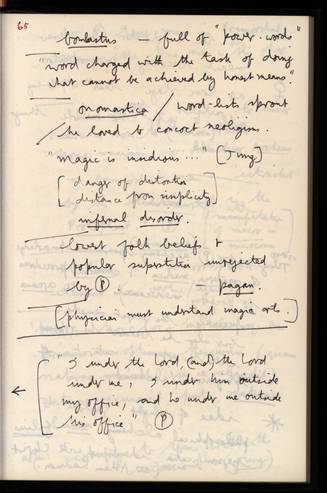 65
bombastus — full of "power-words"
"word charged with the task of doing
what cannot be achieved by honest means."
onomastica / word-lists sprout
/ he loved to concoct neologisms.
"magic is insidious..." (Jung)
[ danger of distortion
distance from simplicity ]
infernal disorder.
lowest folk beliefs &
popular superstition unrejected
by (P). — pagan.
[physician must understand magic arts.]
"I under the Lord, (and) the Lord
under me, I under him outside
← my office, and he under me outside
his office" (P)